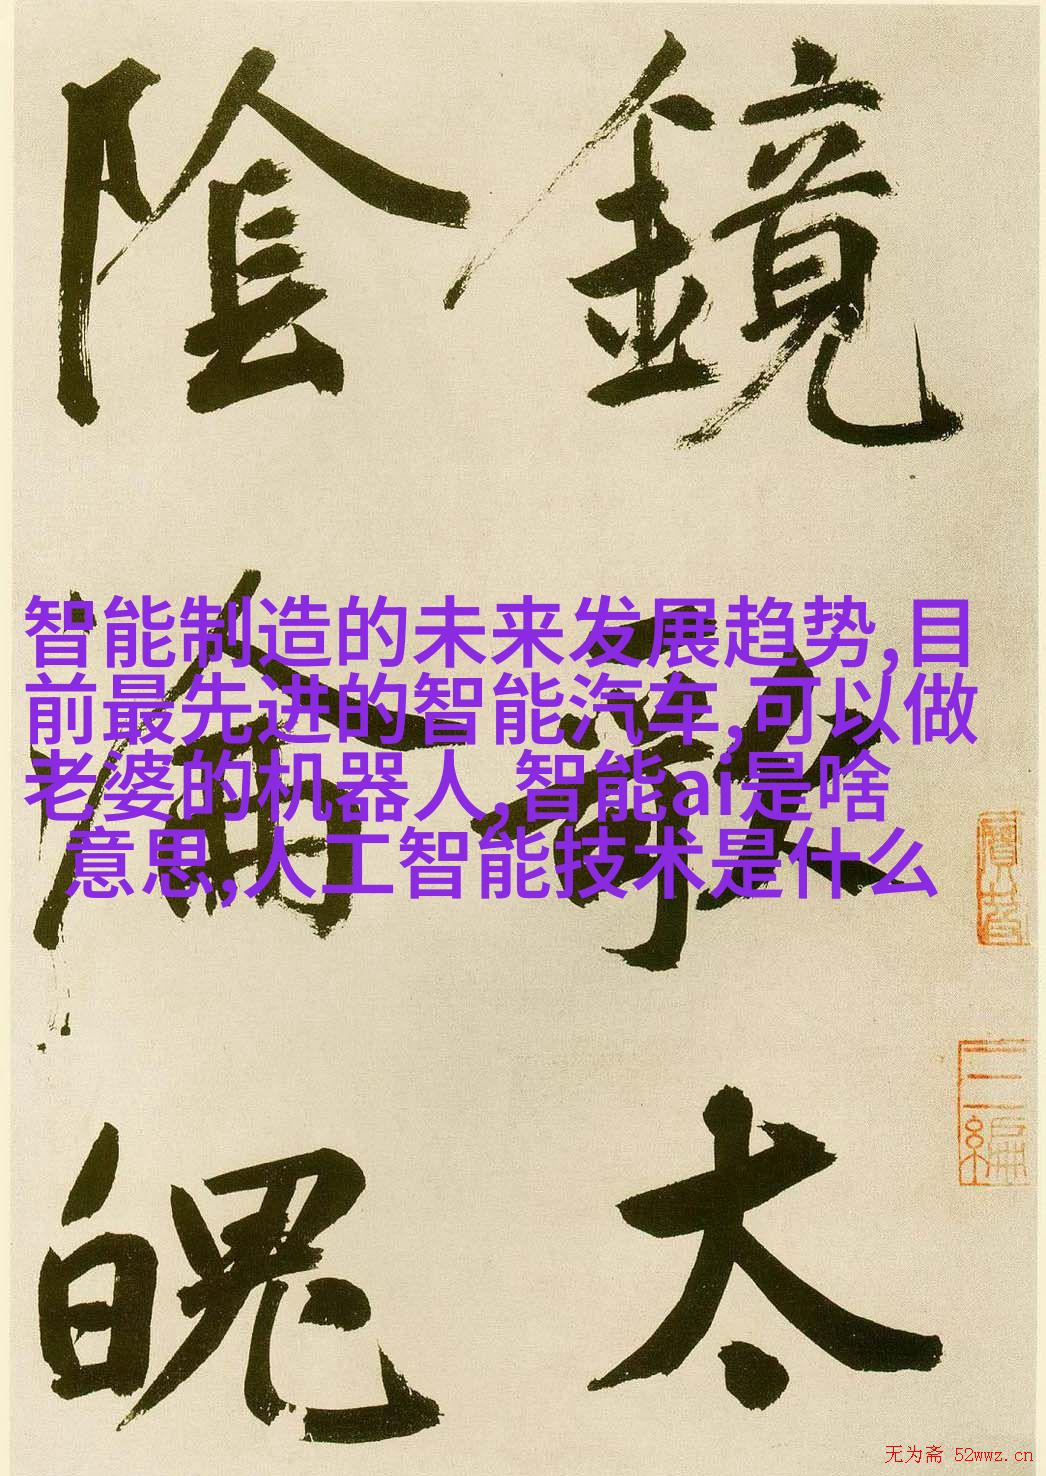 鏡
太
陰
淪
魄
智能制造的未来发展趋势,目
前最先进的智能汽车,可以做
老婆的机器人,智能ai是啥
意思,人工智能技术是什么
无为斋 52wwz.cn